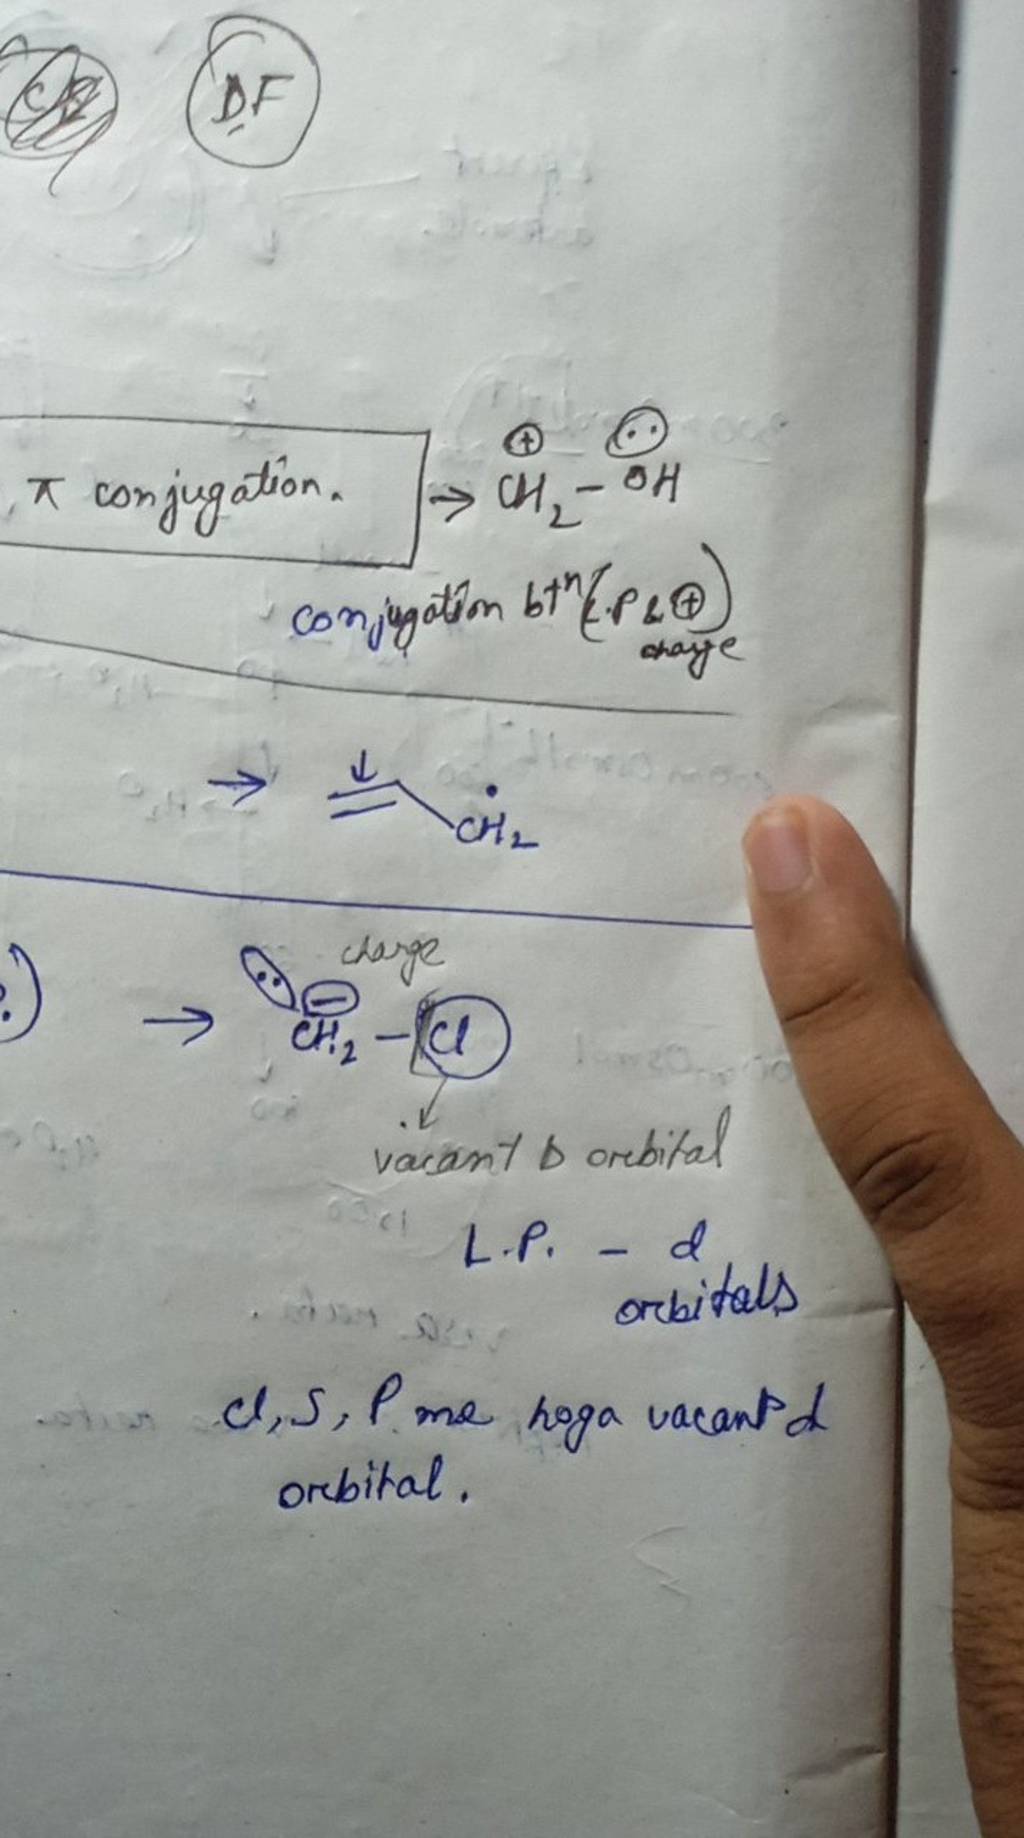 DF
π conjugation. → ⊕CH₂ – ÖH
conjugation btⁿ (L.P & ⊕)
charge
→ CH₂
charge
→ ⊖CH₂ – Cl
vacant D orbital
L.P. – d
orbitals
Cl, S, P me hoga vacant d
orbital.